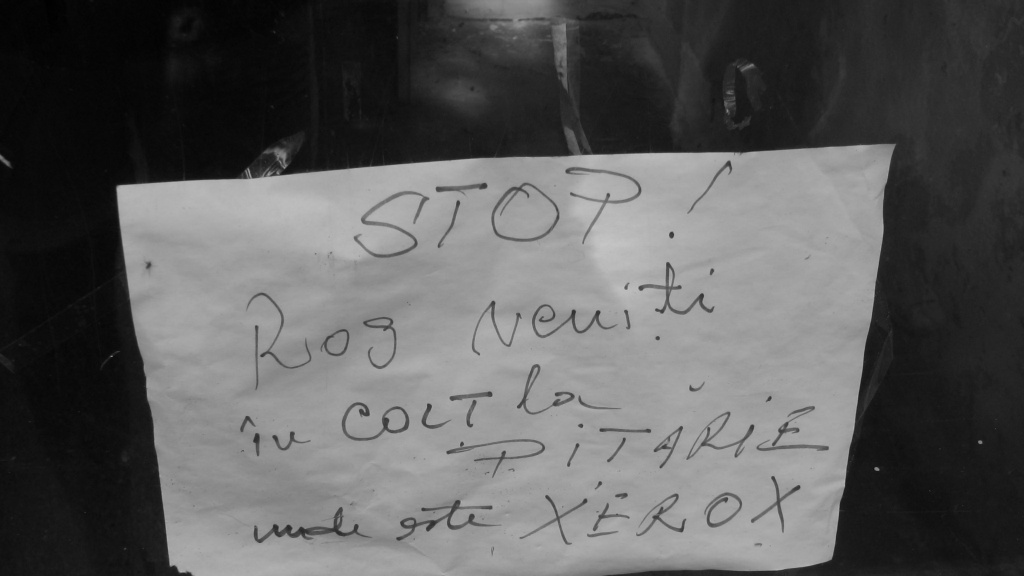 STOP!
Rog veniți
în COLT la
PITĂRIE
unde este XEROX